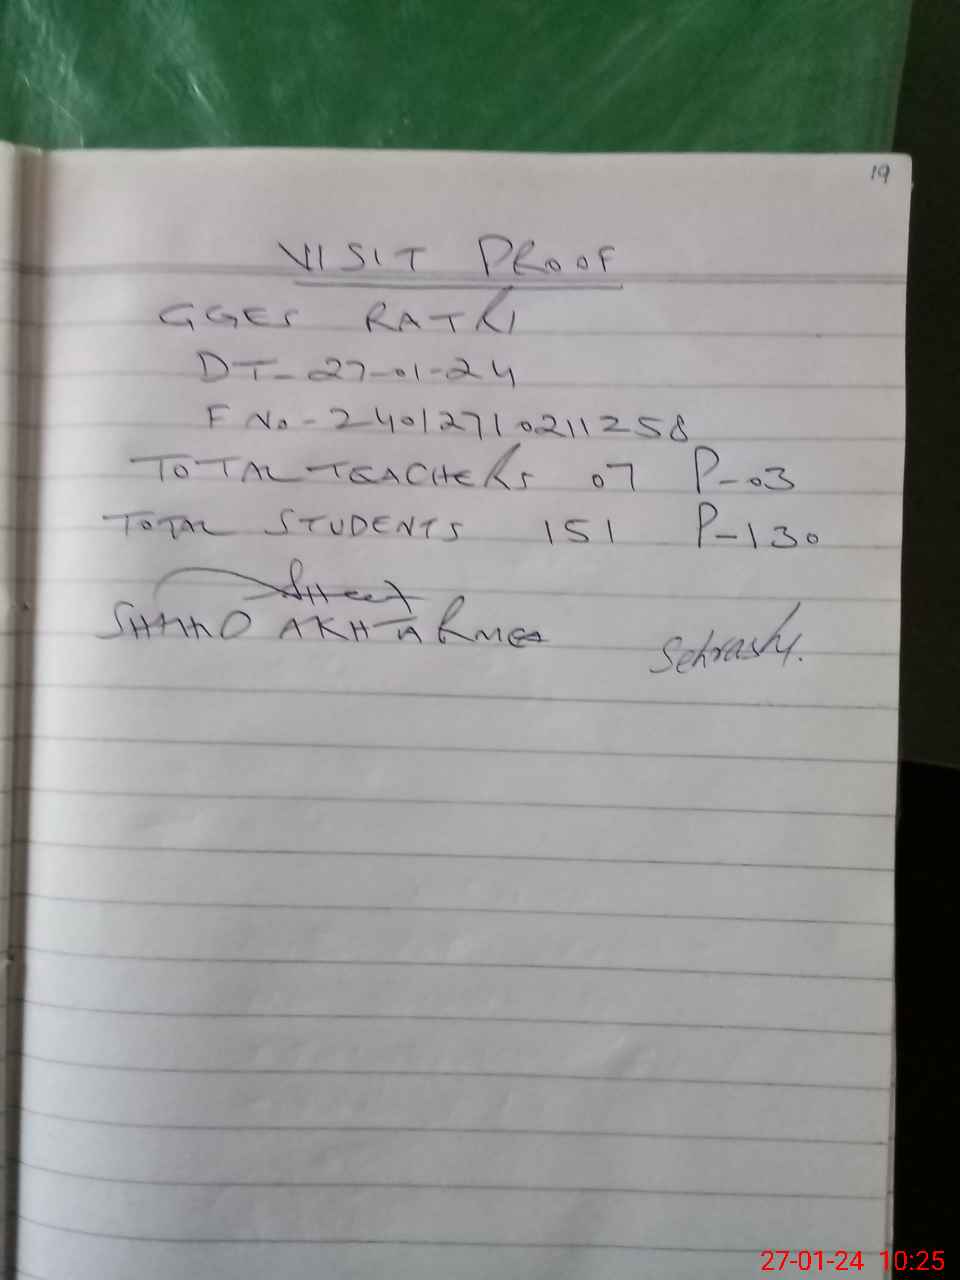 19
VISIT PROOF
GGES RATKI
DT-27-01-24
F No-24012710211258
TOTAL TEACHERS 07 P-03
TOTAL STUDENTS 151 P-130
AKHTAR MEA
27-01-24 10:25